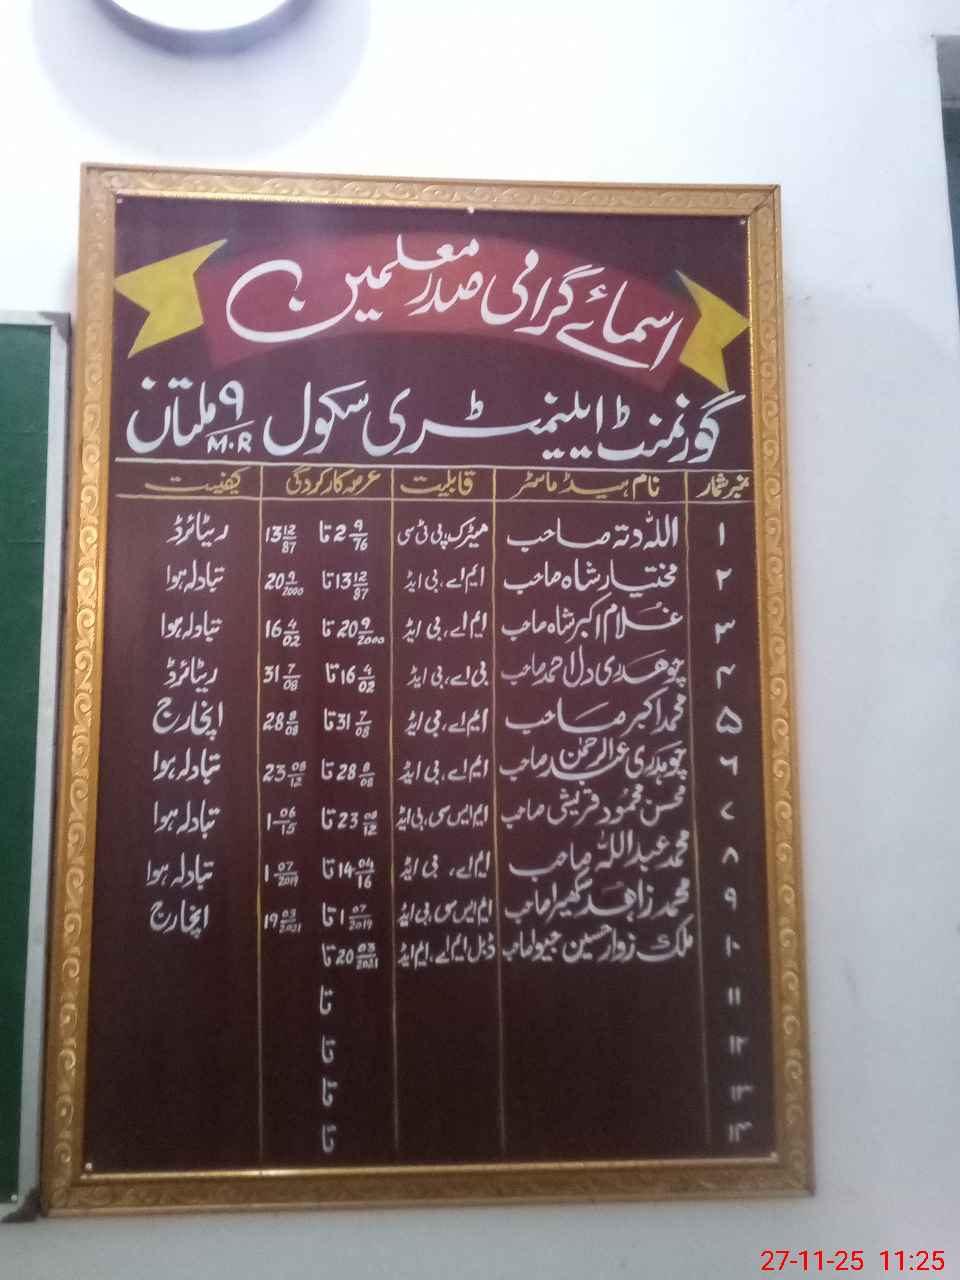 اسمائے گرامی صدر معلمین
گورنمنٹ ایلیمنٹری سکول 9/M.R ملتان
نمبر شمار نام ہیڈ ماسٹر قابلیت عرصہ کارکردگی کیفیت
۱ اللہ دتہ صاحب میٹرک، پی ٹی سی 2 9/76 تا 13 12/87 ریٹائرڈ
۲ مختیار شاہ صاحب ایم اے، بی ایڈ 13 12/87 تا 20 9/2000 تبادلہ ہوا
۳ غلام اکبر شاہ صاحب ایم اے، بی ایڈ 20 9/2000 تا 16 4/02 تبادلہ ہوا
۴ چوھدری دل احمد صاحب بی اے، بی ایڈ 16 4/02 تا 31 7/08 ریٹائرڈ
۵ محمد اکبر صاحب ایم اے، بی ایڈ 31 7/08 تا 28 8/08 انچارج
۶ چوہدری عبدالرحمٰن صاحب ایم اے، بی ایڈ 28 8/08 تا 23 08/12 تبادلہ ہوا
۷ محسن محمود قریشی صاحب ایم ایس سی، بی ایڈ 23 08/12 تا 1 06/15 تبادلہ ہوا
۸ محمد عبداللہ صاحب ایم اے، بی ایڈ 14 04/16 تا 1 07/2019 تبادلہ ہوا
۹ محمد زاھد صاحب ایم ایس سی، بی ایڈ 1 07/2019 تا 19 03/2021 انچارج
۱۰ ملک زوار حسین صاحب ڈبل ایم اے، ایم ایڈ 20 03/2021 تا
۱۱ تا
۱۲ تا
۱۳ تا
۱۴ تا
27-11-25 11:25